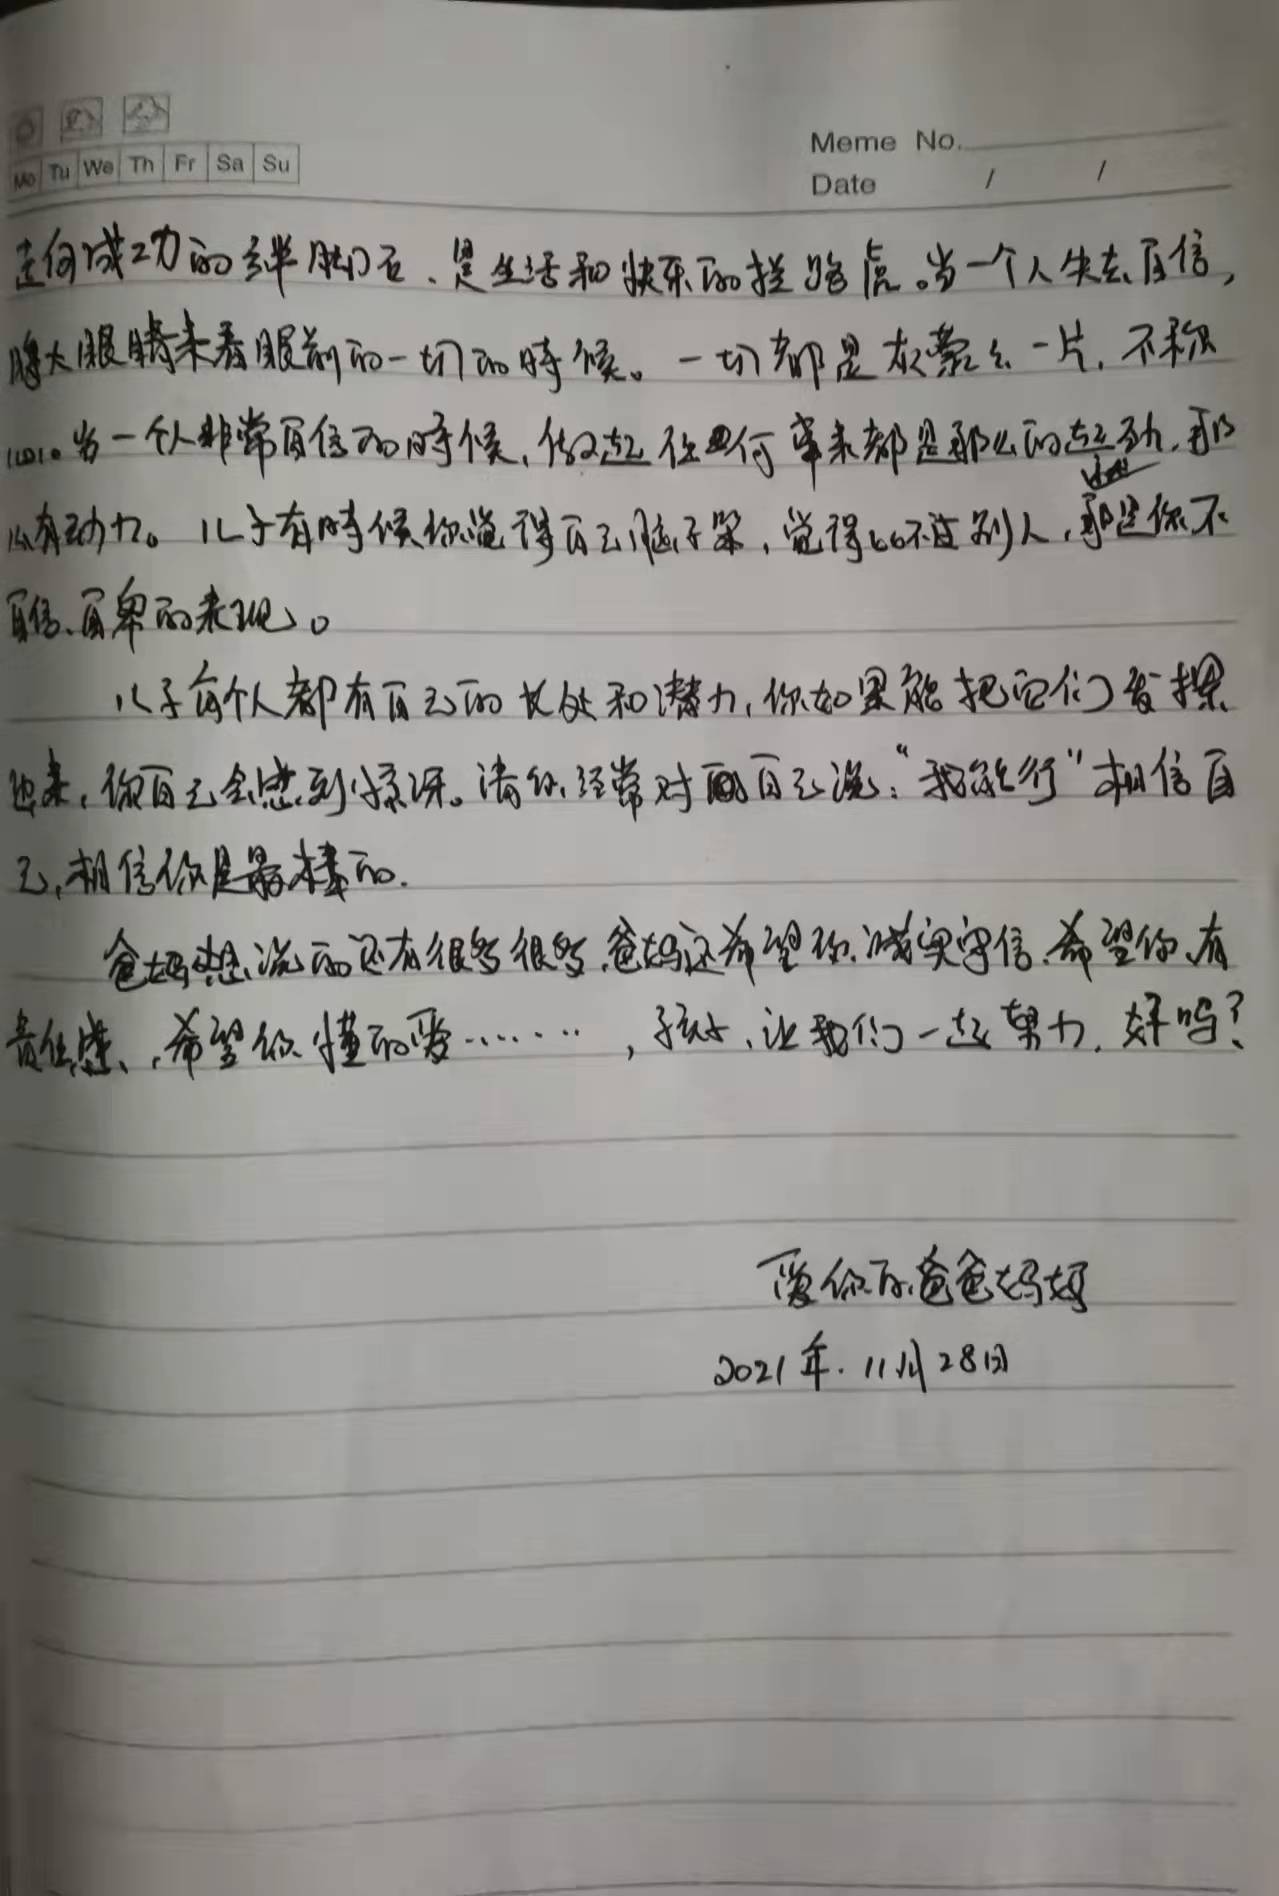 Mo Tu We Th Fr Sa Su
Meme No.
Date / /
走向成功的绊脚石、是生活和快乐的拦路虎。当一个人失去自信,
睁大眼睛来看眼前的一切的时候。一切都是灰蒙么一片,不称
心。当一个人非常自信的时候,做起任何事来都是那么的起劲,那
么有动力。儿子有时候你觉得自己脑子笨,觉得比不过别人,那是你不
自信、自卑的表现。
儿子每个人都有自己的长处和潜力,你如果能把它们发掘
出来,你自己会感到惊讶。请你经常对自己说:“我能行”相信自
己,相信你是最棒的.
爸妈想说的还有很多很多,爸妈还希望你诚实守信、希望你有
责任感、,希望你懂的爱……,孩子、让我们一起努力,好吗?
爱你的爸爸妈妈
2021年.11月28日